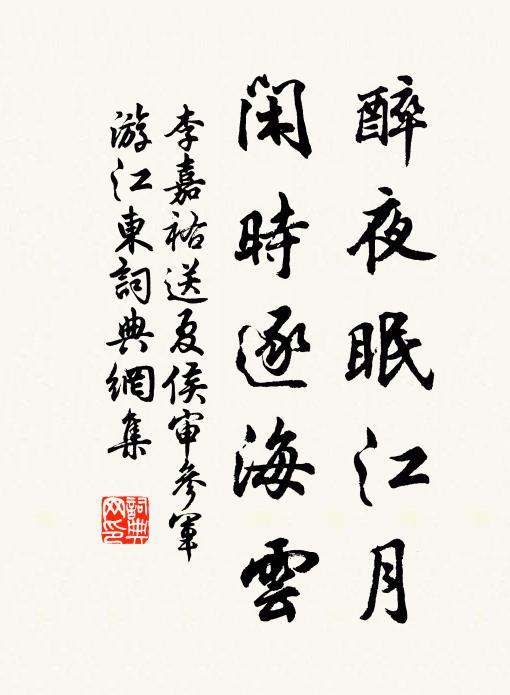 醉夜眠江月
閑時逐海雲
李嘉祐送夏侯审參軍
游江東詞典網集
詞典网印